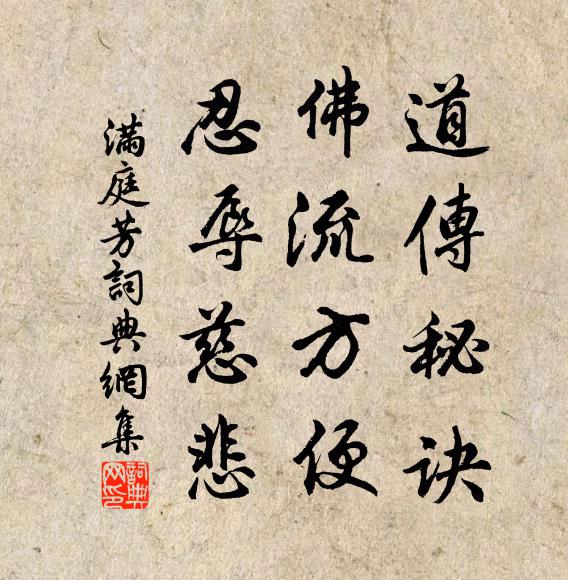 道傳秘訣
佛流方便
忍辱慈悲
滿庭芳詞典網集
詞典网印